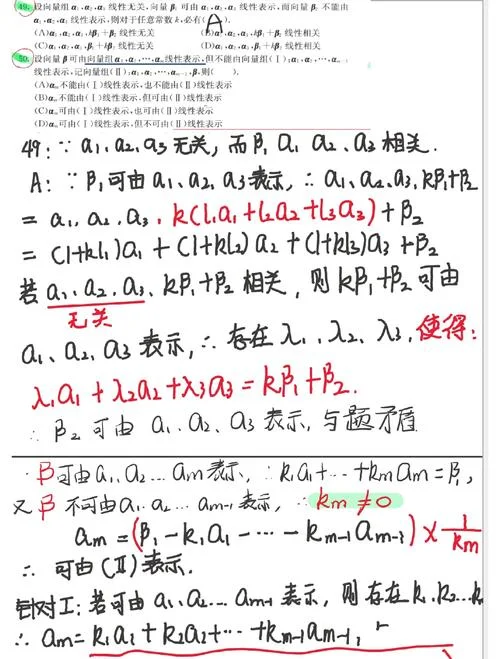 49. 设向量组α₁,α₂,α₃线性无关,向量β₁可由α₁,α₂,α₃线性表示,而向量β₂不能由
α₁,α₂,α₃线性表示,则对于任意常数k,必有( A ).
(A)α₁,α₂,α₃,kβ₁+β₂线性无关 (B)α₁,α₂,α₃,kβ₁+β₂线性相关
(C)α₁,α₂,α₃,β₁+kβ₂线性无关 (D)α₁,α₂,α₃,β₁+kβ₂线性相关
50. 设向量β可由向量组α₁,α₂,⋯,αₘ线性表示,但不能由向量组(Ⅰ):α₁,α₂,⋯,αₘ₋₁
线性表示,记向量组(Ⅱ):α₁,α₂,⋯,αₘ₋₁,β,则( ).
(A)αₘ不能由(Ⅰ)线性表示,也不能由(Ⅱ)线性表示
(B)αₘ不能由(Ⅰ)线性表示,但可由(Ⅱ)线性表示
(C)αₘ可由(Ⅰ)线性表示,也可由(Ⅱ)线性表示
(D)αₘ可由(Ⅰ)线性表示,但不可由(Ⅱ)线性表示
49: ∵ a₁、a₂、a₃ 无关, 而 β₁ a₁ a₂、a₃ 相关.
A: ∵ β₁可由 a₁、a₂、a₃ 表示, ∴ a₁、a₂、a₃, kβ₁+β₂
= a₁、a₂、a₃、k(l₁a₁+l₂a₂+l₃a₃)+β₂
= (1+kl₁)a₁ + (1+kl₂)a₂ + (1+kl₃)a₃ +β₂
若 a₁、a₂、a₃、kβ₁+β₂ 相关, 则 kβ₁+β₂ 可由
无关
a₁、a₂、a₃ 表示, ∴ 存在 λ₁、λ₂、λ₃, 使得:
λ₁a₁ + λ₂a₂ + λ₃a₃ = kβ₁+β₂.
∴ β₂ 可由 a₁、a₂、a₃ 表示, 与题矛盾
∵ β可由 a₁、a₂… aₘ 表示, ∴ k₁a₁+…+kₘaₘ=β,
又 β 不可由a₁、a₂… aₘ₋₁ 表示, ∴ kₘ ≠ 0
aₘ=(β₁-k₁a₁-…-kₘ₋₁aₘ₋₁)×1/kₘ
∴ 可由(Ⅱ)表示.
针对Ⅰ: 若可由 a₁、a₂… aₘ₋₁ 表示, 则存在 k₁、k₂…k
∴ aₘ=k₁a₁+k₂a₂+…+kₘ₋₁aₘ₋₁,